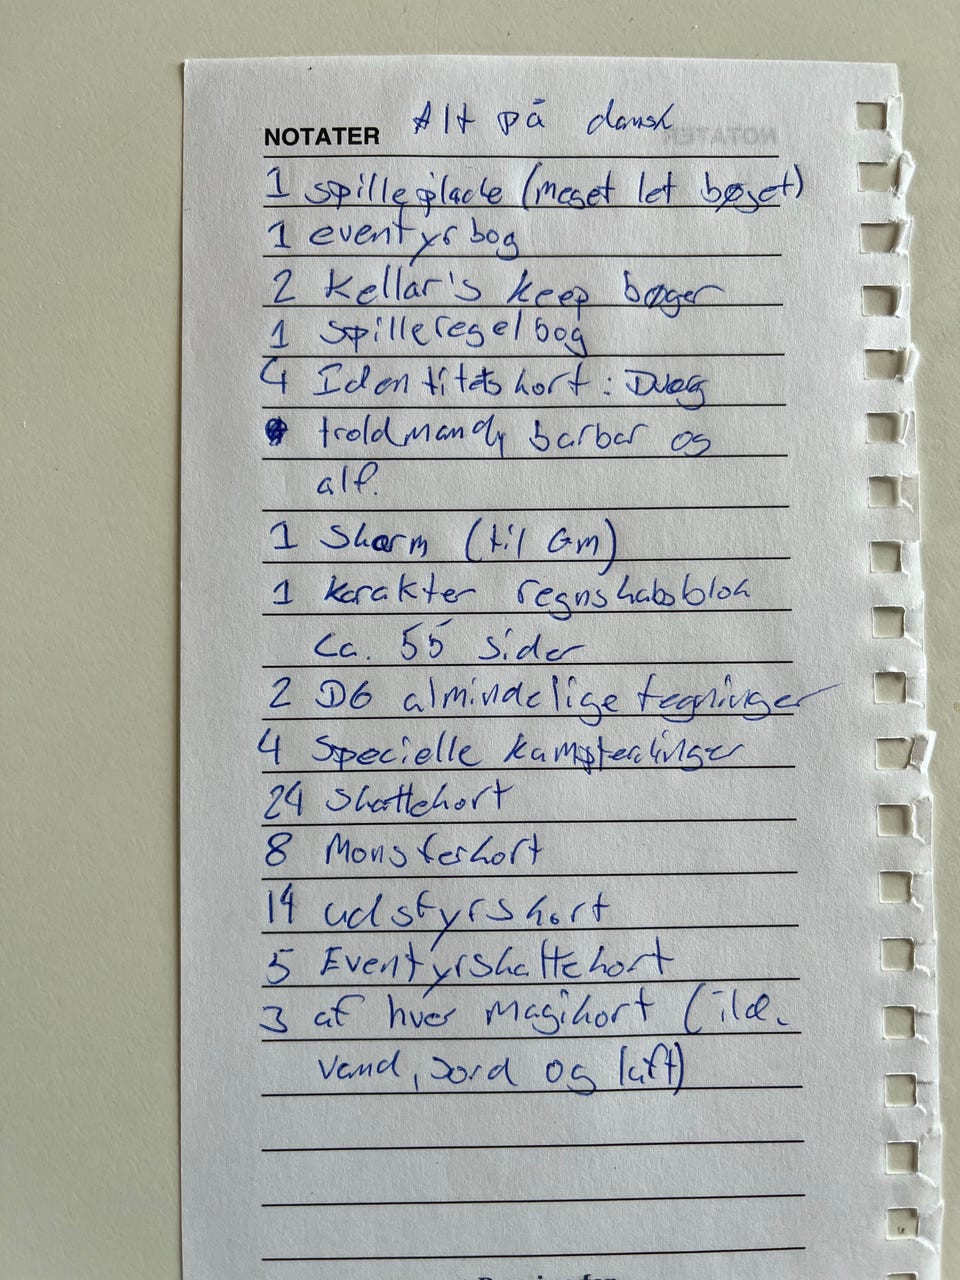 Alt på dansk
NOTATER
1 spilleplade (meget let bøget)
1 eventyrbog
2 Kellar's keep bøger
1 spilleregelbog
4 Identitetskort: Dværg
troldmand, barbar og
alf.
1 Skærm (til Gm)
1 karakter regnskabsblok
Ca. 55 sider
2 D6 almindelige tegninger
4 Specielle kampterninger
24 Skattekort
8 Monsterkort
14 udstyrskort
5 Eventyrskattekort
3 af hver magikort (ild,
vand, jord og luft)